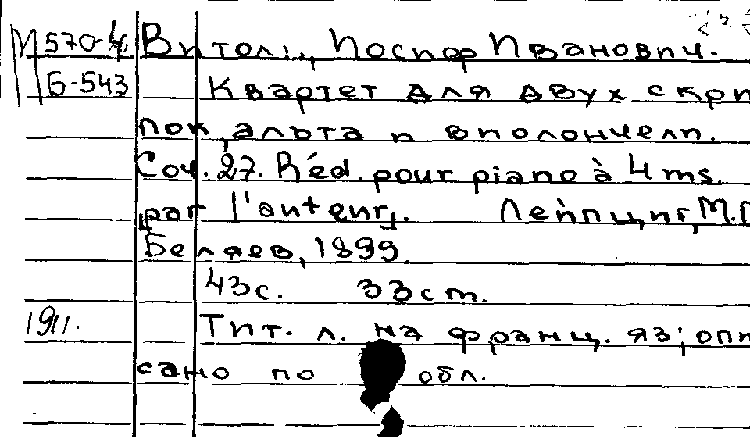 М 570-4 Витол., Иосиф Иванович.
Б-543 Квартет для двух скри
пок, альта и виолончели.
Соч. 27. Réd. pour piano à 4 ms.
par l'auteur. Лейпциг, М.П.
Беляев, 1899.
43с. 33см.
1911. Тит. л. на франц. яз; опи
сано по обл.